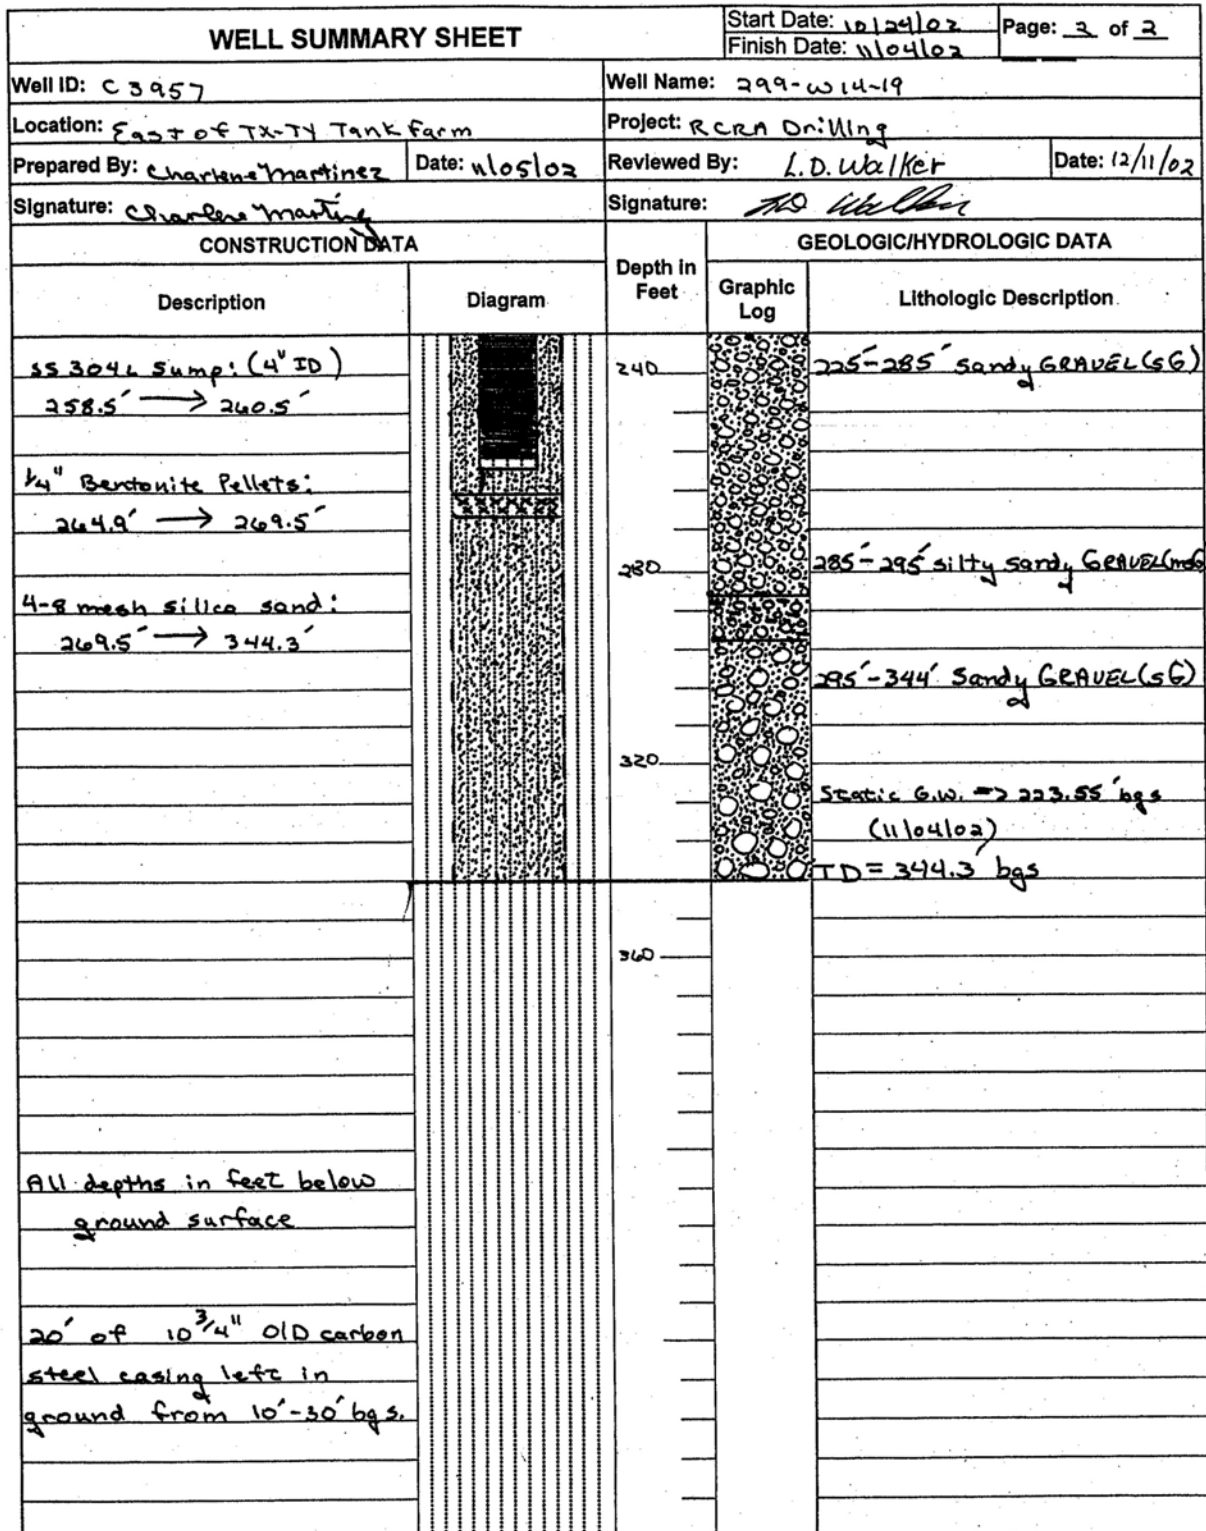 WELL SUMMARY SHEET
Start Date: 10/24/02
Finish Date: 11/04/02
Page: 2 of 2
Well ID: C3957
Well Name: 299-W14-19
Location: East of TX-TY Tank Farm
Project: RCRA Drilling
Prepared By: Charlene Martinez
Date: 11/05/02
Reviewed By: L.D. Walker
Date: 12/11/02
Signature: Charlene Martinez
Signature: LD Walker
CONSTRUCTION DATA
GEOLOGIC/HYDROLOGIC DATA
Description
Diagram
Depth in
Feet
Graphic
Log
Lithologic Description
SS 304L Sump: (4" ID)
258.5' → 260.5'
1/4" Bentonite Pellets:
264.9' → 269.5'
4-8 mesh silica sand:
269.5' → 344.3'
All depths in feet below
ground surface
20' of 10 3/4" O/D carbon
steel casing left in
ground from 10'-30' bgs.
240
280
320
360
225'-285' Sandy GRAVEL (sG)
285'-295' silty sandy GRAVEL (msG)
295'-344' Sandy GRAVEL (sG)
Static G.W. => 223.55' bgs
(11/04/02)
TD = 344.3' bgs